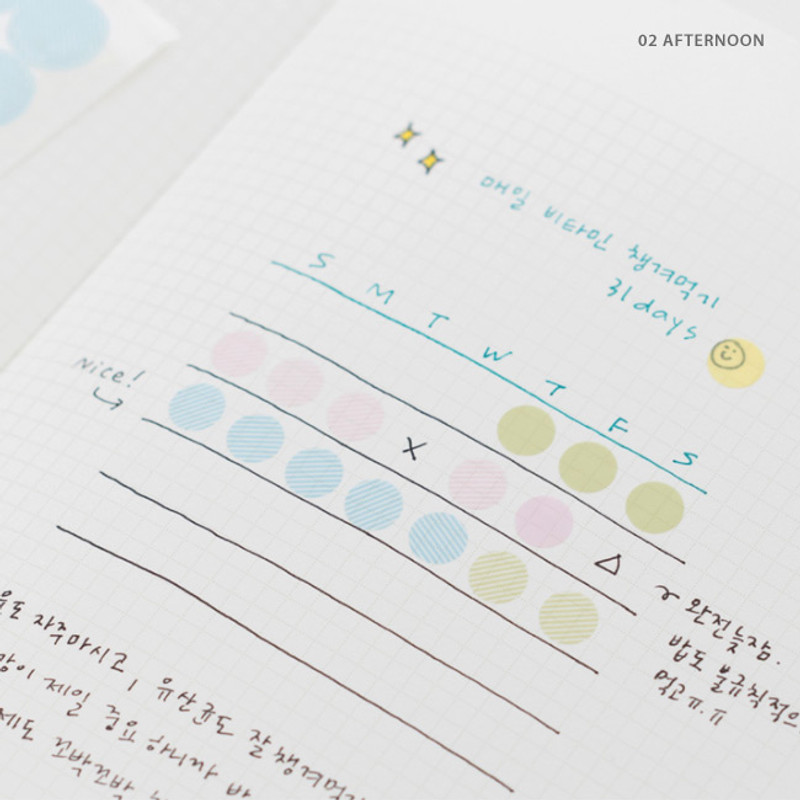 02 AFTERNOON
매일 비타민 챙겨먹기
31 days
S M T W T F S
Nice!
X
완전늦잠.
밥도 불규칙적으
먹고ㅠ.ㅠ
자주마시고, 유산균도 잘챙겨먹기
제일 중요하니까
꼬박꼬박